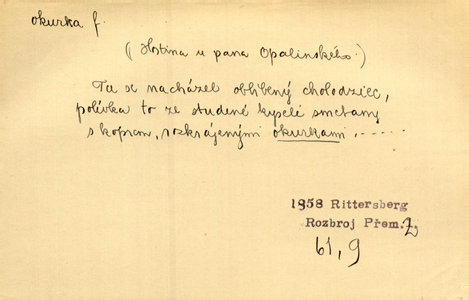 okurka f.
(Hostina u pana Opalinského.)
Tu se nacházel oblíbený cholodziec,
polívka to ze studené kyselé smetany
s koprem, rozkrájenými okurkami, .....
1858 Rittersberg
Rozbroj Přem. 2
61, 9